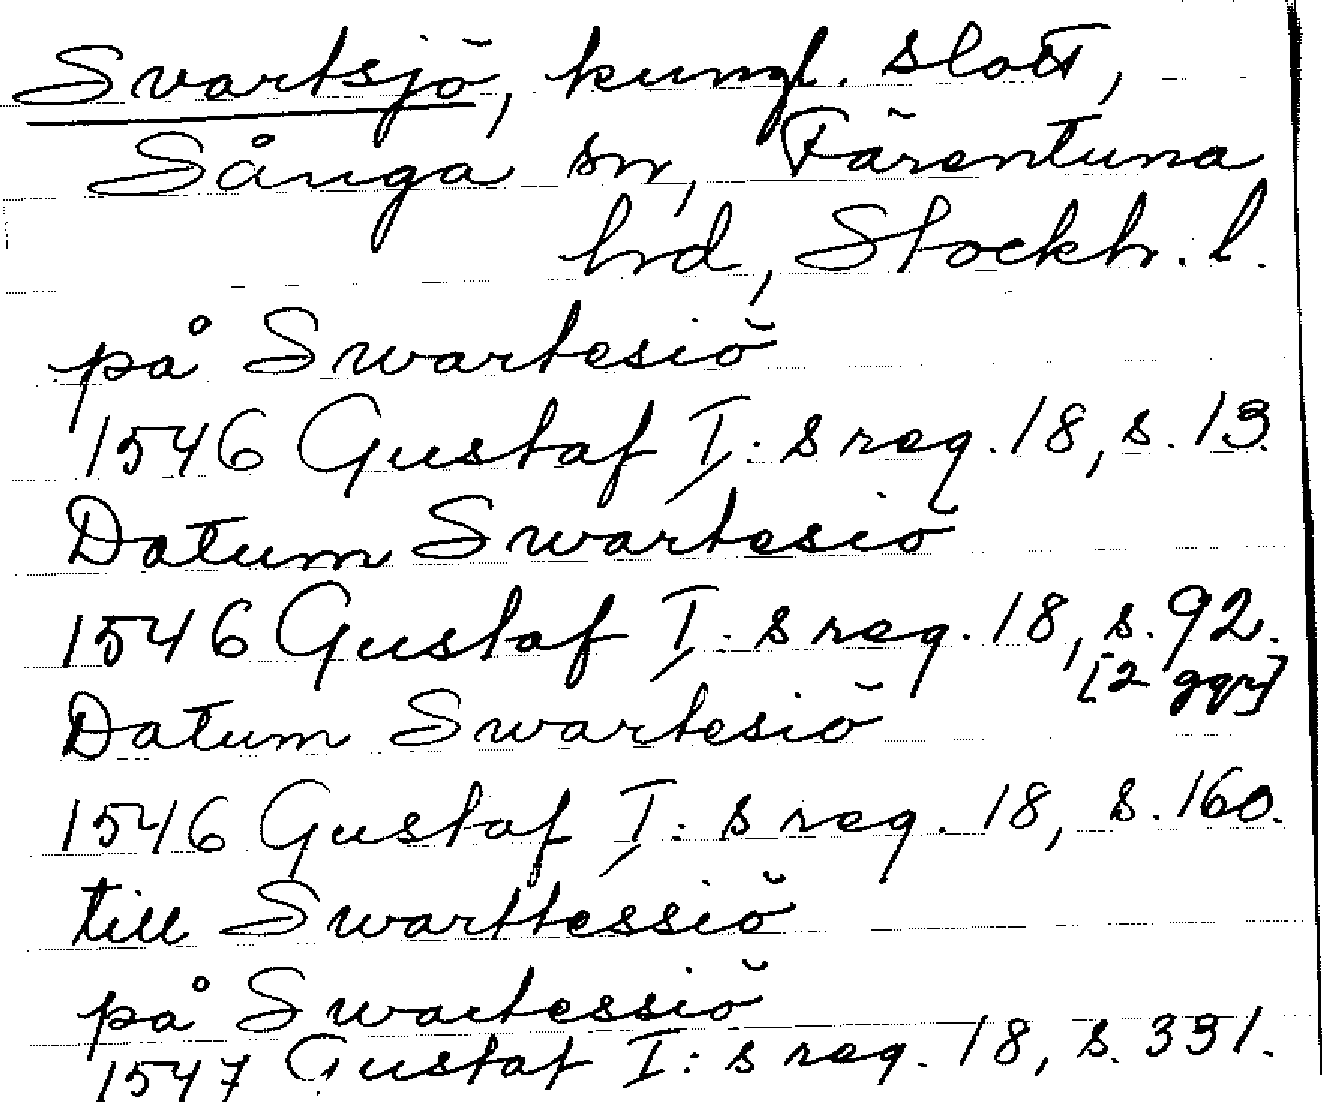 Svartsjö, kungl. slott,
Sånga sn, Färentuna
hd, Stockh. l.
på Swartesiö
1546 Gustaf I:s reg. 18, s. 13.
Datum Swartesiö
1546 Gustaf I:s reg. 18, s. 92.
[2 ggr]
Datum Swartesiö
1546 Gustaf I:s reg. 18, s. 160.
till Swarttessiö
på Swartessiö
1547 Gustaf I:s reg. 18, s. 331.